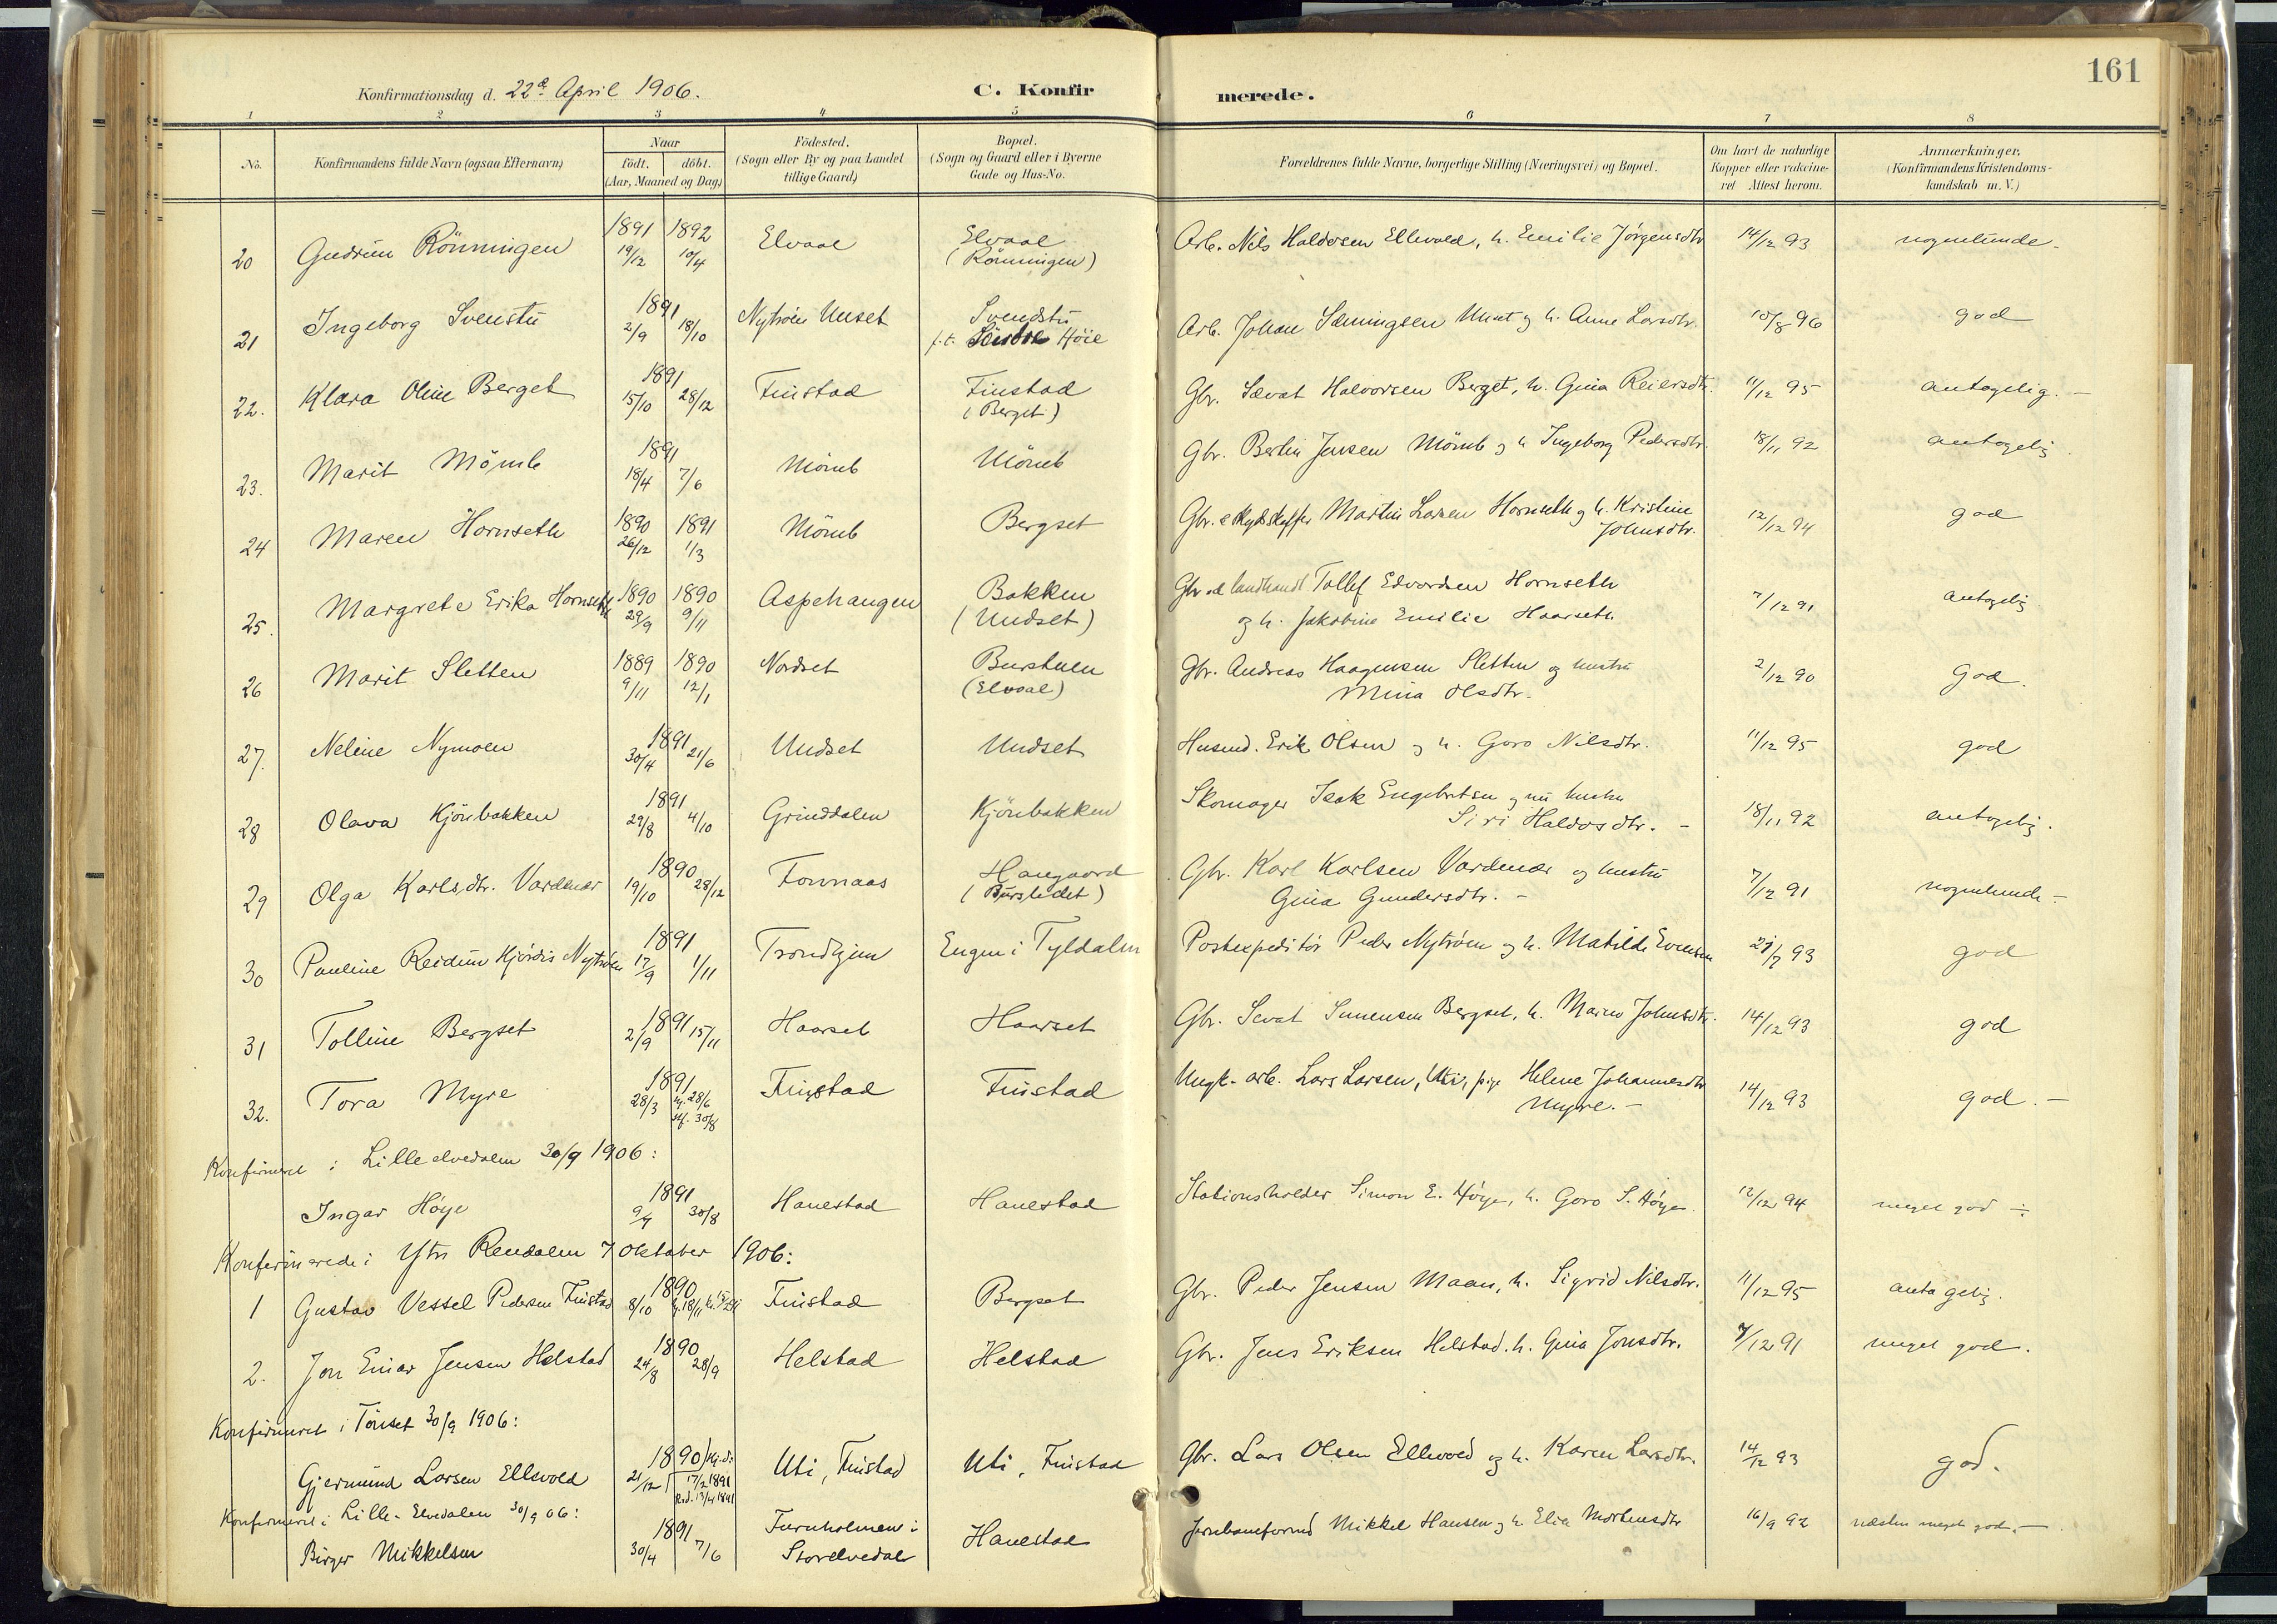 161
Konfirmationsdag d. 22de April 1906.
C. Konfirmerede.
1 2 3 4 5 6 7 8
No.
Konfirmandens fulde Navn (ogsaa Efternavn)
Naar
født. döbt.
(Aar, Maaned og Dag)
Födested.
(Sogn eller By og paa Landet
tillige Gaard)
Bopæl.
(Sogn og Gaard eller i Byerne
Gade og Hus-No.
Forældrenes fulde Navne, borgerlige Stilling (Næringsvei) og Bopæl.
Om havt de naturlige
Kopper eller vakcineret
Attest herom.
Anmærkninger.
(Konfirmandens Kristendomskundskab
m. V.)
20 Gudrun Rönningen 1891 19/12 1892 10/4 Elvaal Elvaal (Rönningen) Arb. Nils Haldosen Ellevold, h. Emilie Jörgensdtr 14/12 93 nogenlunde.
21 Ingeborg Svenstu 1891 2/9 18/10 Nytröen Unset Svendstu f.t. Höie Arb. Johan Sæmingsen Unset og h. Anne Larsdtr. 15/8 96 god
22. Klara Oline Berget 1891 15/10 28/12 Finstad Finstad (Berget) Gbr. Sævat Halvorsen Berget, h. Gina Reiersdtr. 11/12 95 antagelig.
23. Marit Mömb 1891 18/4 7/6 Mömb Mömb Gbr. Berlin Jensen Mömb og h Ingeborg Pedersdtr. 18/11 92 antagelig
24 Maren Hornseth 1890 26/12 1891 1/3 Mömb Bergset Gbr. & skydsskaffer Martin Larsen Hornseth og h. Kristine Johnsdtr. 12/12 94 god
25. Margrete Erika Hornseth 1890 29/9 1890 9/11 Aspehaugen Bakken (Undset) Gbr. og landhandl Tollef Edvardsen Hornseth og h. Jakobine Emilie Haarseth 7/12 91 antagelig
26 Marit Sletten 1889 9/11 1890 12/1 Nordset Burstuen (Elvaal) Gbr. Andreas Haagensen Sletten og hustru Mina Olsdtr. 2/12 90 God.
27. Neline Nymoen 1891 30/4 21/6 Undset Undset Husmd. Erik Olsen og h. Goro Nilsdtr. 11/12 95 god
28 Olava Kjönbakken 1891 29/8 4/10 Grinddalen Kjönbakken Skomager Isak Engebretsen og hustru Siri Haldosdtr. 18/11 92 antagelig.
29 Olga Karlsdtr. Vardenær 1890 19/10 28/12 Fornaas Haugaard (Burstedet) Gbr. Karl Karlsen Vardenær og hustru Gina Gundersdtr. 7/12 91 nogenlunde
30 Pauline Reidun Hjördis Nytröen 1891 17/9 1/11 Trondhjem Engen i Tyldalen Postexpeditör Peder Nytröen og h. Matilde Evensen 21/7 93 god
31 Tolline Bergset 1891 2/9 15/11 Haarset Haarset Gbr. Sevat Simensen Bergset, h. Maren Johnsdtr. 14/12 93 god
32. Tora Myre 1891 28/3 hj. 28/6 stf. 30/8 Finstad Finstad Ungk. arb. Lars Larsen, Uti, pige Helene Johannesdtr Myre. 14/12 93 god.
Konfirmeret i Lilleelvedalen 30/9 1906:
Ingar Höye 1891 9/7 30/8 Hanestad Hanestad Stationsholder Simon E. Höye, h. Goro S. Höye. 12/12 94 meget god
Konfirmerede i Ytre Rendalen 7 Oktober 1906:
1 Gustav Vessel Pedersen Finstad 1890 8/10 Finstad Bergset Gbr. Peder Jensen Maan, h. Sigrid Nilsdtr. 11/12 95 antagelig.
2. Jon Einar Jensen Helstad 1890 24/8 28/9 Helstad Helstad Gbr. Jens Eriksen Helstad. h. Gina Jonsdtr. 7/12 91 meget god.
Konfirmeret i Tönset 30/9 1906:
Gjermund Larsen Ellevold 1890 21/12 hj.d. 17/2 1891 13/4 1891 Uti, Finstad Uti, Finstad Gbr. Lars Olsen Ellevold og h. Karen Larsdtr. 14/12 93 god.
Konfirmeret i Lille-Elvedalen 30/9 06:
Birger Mikkelsen 1891 30/4 7/6 Furuholmen i Storelvedal Hanestad Jernbaneformd Mikkel Hansen og h Elia Mortensdtr 16/9 92 næsten meget god.